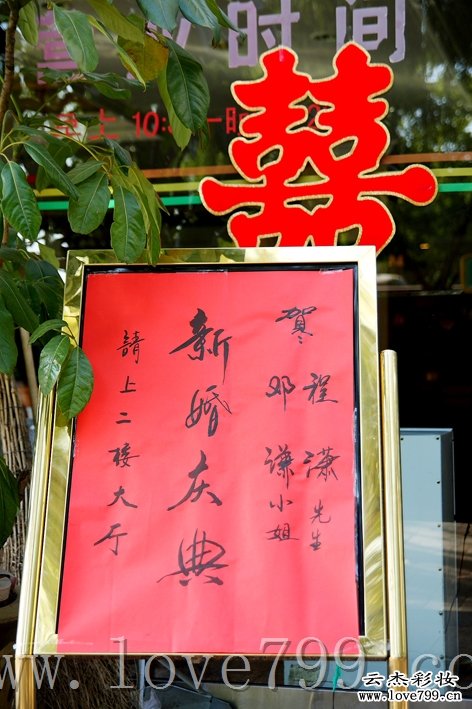 时间
囍
賀
程潇先生
邓谦小姐
新婚庆典
請上二楼大厅
www.love799.co
云杰彩妆
www.love799.cn